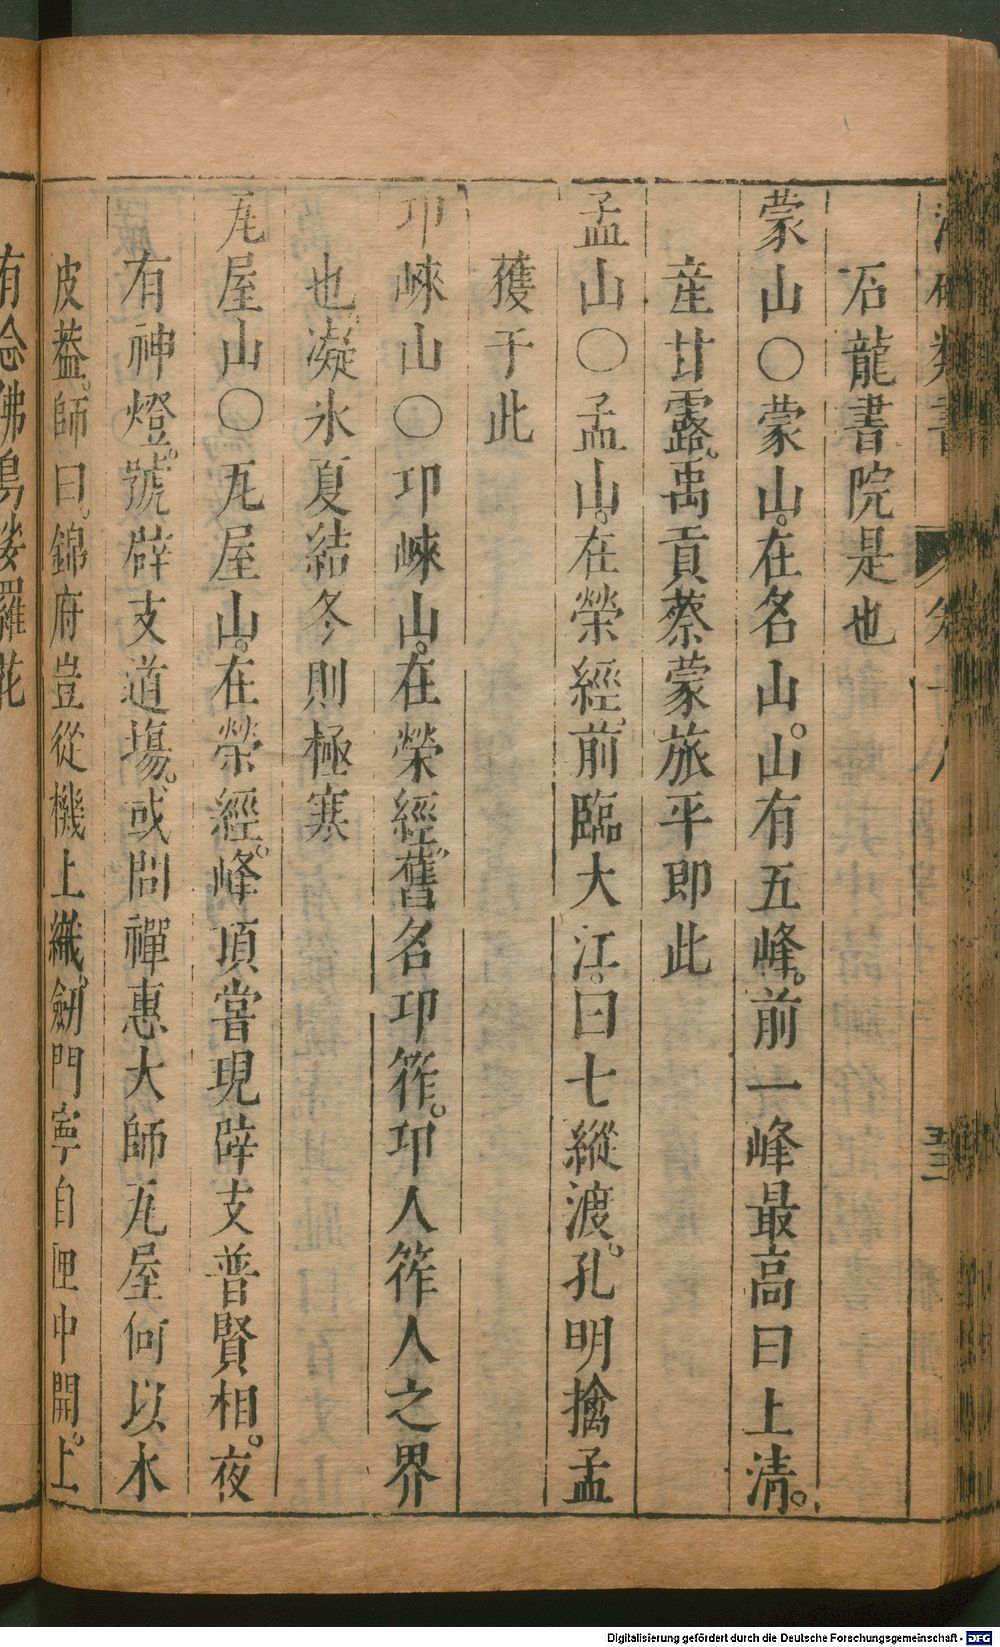 石龍書院是也
蒙山○蒙山。在名山。山有五峰。前一峰最高曰上清。
産甘露。禹貢蔡蒙旅平即此
孟山○孟山。在榮經。前臨大江。曰七縱渡。孔明擒孟
獲于此
邛崍山○邛崍山。在榮經。舊名邛筰。邛人筰人之界
也。凝氷夏結冬則極寒
瓦屋山○瓦屋山。在榮經。峰頂嘗現辟支普賢相。夜
有神燈。號辟支道場。或問禪惠大師瓦屋何以木
皮葢。師曰。錦府豈從機上織。劒門寧自匣中開。上
有念佛鳥娑羅花
Digitalisierung gefördert durch die Deutsche Forschungsgemeinschaft - DFG